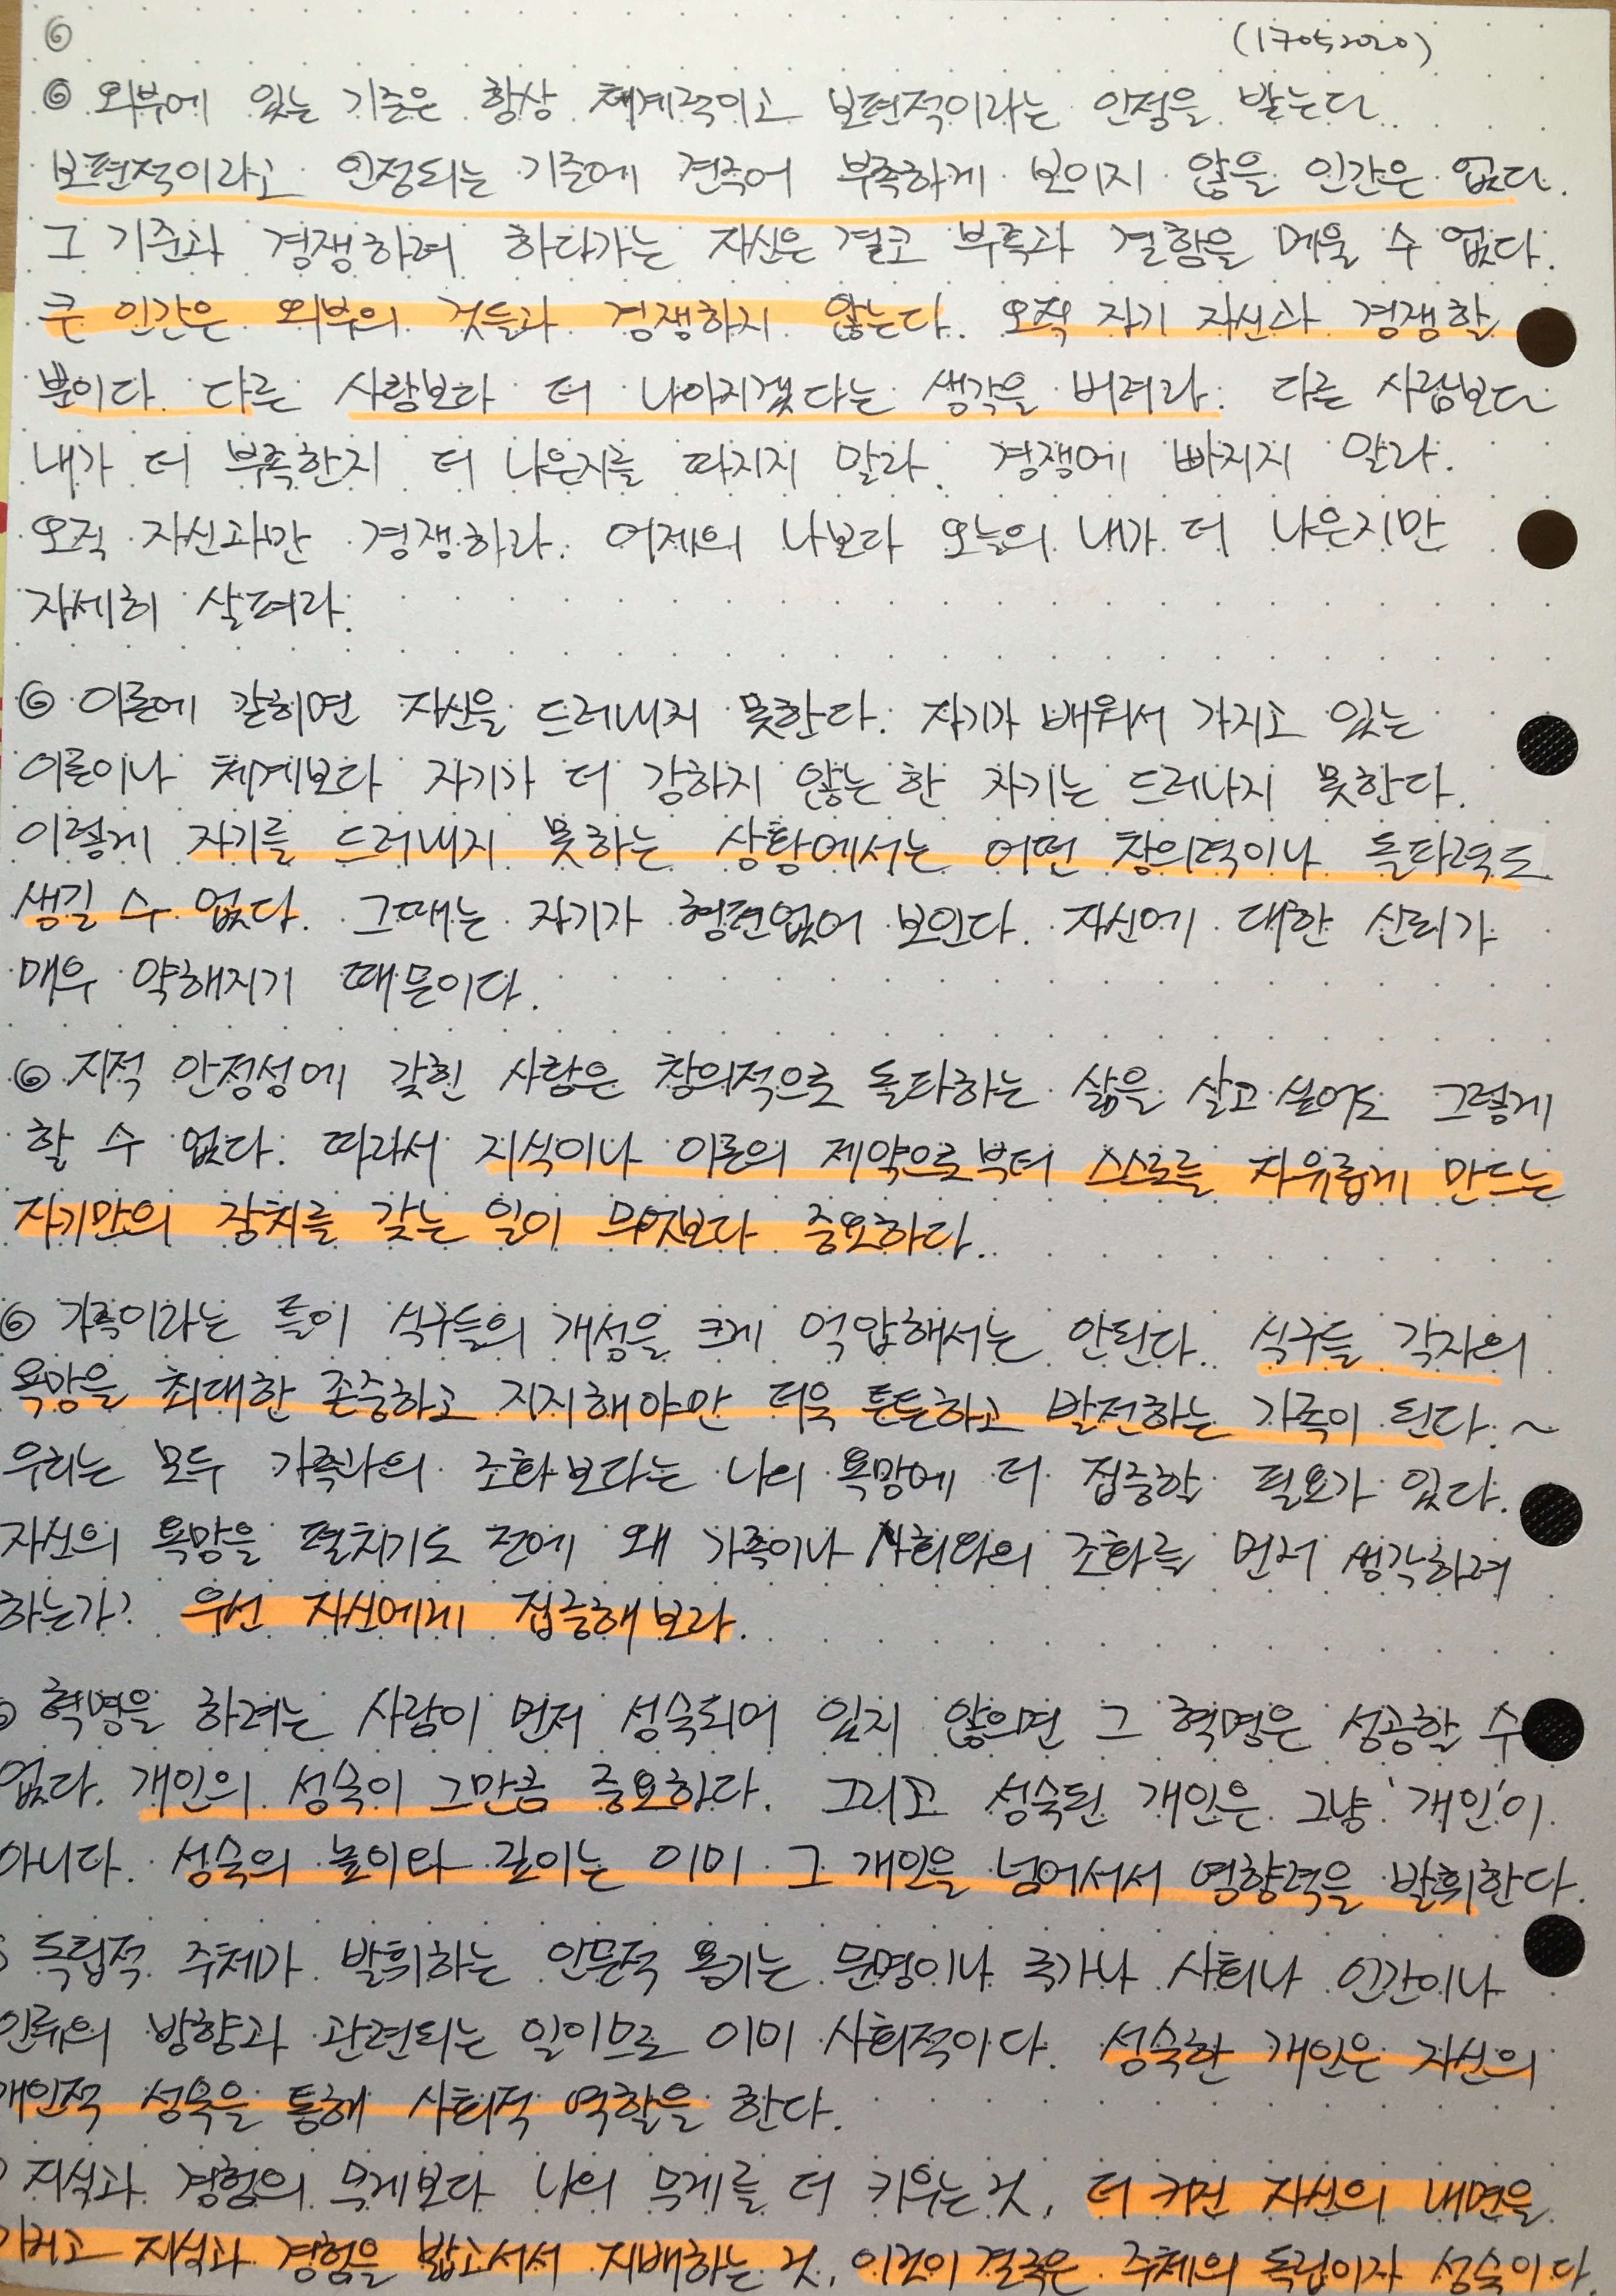 ⑥ (17052020)
◎ 외부에 있는 기준은 항상 체계적이고 보편적이라는 인정을 받는다.
보편적이라고 인정되는 기준에 견주어 부족하게 보이지 않을 인간은 없다.
그 기준과 경쟁하려 하다가는 자신은 결코 부족과 결함을 메울 수 없다.
큰 인간은 외부의 것들과 경쟁하지 않는다. 오직 자기 자신과 경쟁할
뿐이다. 다른 사람보다 더 나아지겠다는 생각을 버려라. 다른 사람보다
내가 더 부족한지 더 나은지를 따지지 말라. 경쟁에 빠지지 말라.
오직 자신과만 경쟁하라. 어제의 나보다 오늘의 내가 더 나은지만
자세히 살펴라.
◎ 이론에 갇히면 자신을 드러내지 못한다. 자기가 배워서 가지고 있는
이론이나 체계보다 자기가 더 강하지 않는 한 자기는 드러나지 못한다.
이렇게 자기를 드러내지 못하는 상황에서는 어떤 창의력이나 돌파력도
생길 수 없다. 그때는 자기가 형편없어 보인다. 자신에 대한 신뢰가
매우 약해지기 때문이다.
◎ 지적 안정성에 갖힌 사람은 창의적으로 돌파하는 삶을 살고 싶어도 그렇게
할 수 없다. 따라서 지식이나 이론의 제약으로부터 스스로를 자유롭게 만드는
자기만의 장치를 갖는 일이 무엇보다 중요하다.
◎ 가족이라는 틀이 식구들의 개성을 크게 억압해서는 안된다. 식구들 각자의
욕망을 최대한 존중하고 지지해야만 더욱 튼튼하고 발전하는 가족이 된다. ~
우리는 모두 가족과의 조화보다는 나의 욕망에 더 집중할 필요가 있다.
자신의 욕망을 펼치기도 전에 왜 가족이나 사회와의 조화를 먼저 생각하려
하는가? 우선 자신에게 집중해 보라.
◎ 혁명을 하려는 사람이 먼저 성숙되어 있지 않으면 그 혁명은 성공할 수
없다. 개인의 성숙이 그만큼 중요하다. 그리고 성숙된 개인은 그냥 '개인'이
아니다. 성숙의 높이와 깊이는 이미 그 개인을 넘어서서 영향력을 발휘한다.
◎ 독립적 주체가 발휘하는 인문적 용기는 문명이나 국가나 사회나 인간이나
인류의 방향과 관련되는 일이므로 이미 사회적이다. 성숙한 개인은 자신의
개인적 성숙을 통해 사회적 역할을 한다.
◎ 지식과 경험의 무게보다 나의 무게를 더 키우는 것, 더 커진 자신의 내면을
가지고 지식과 경험을 밟고서서 지배하는 것, 이것이 결국은 주체의 독립이자 성숙이다.